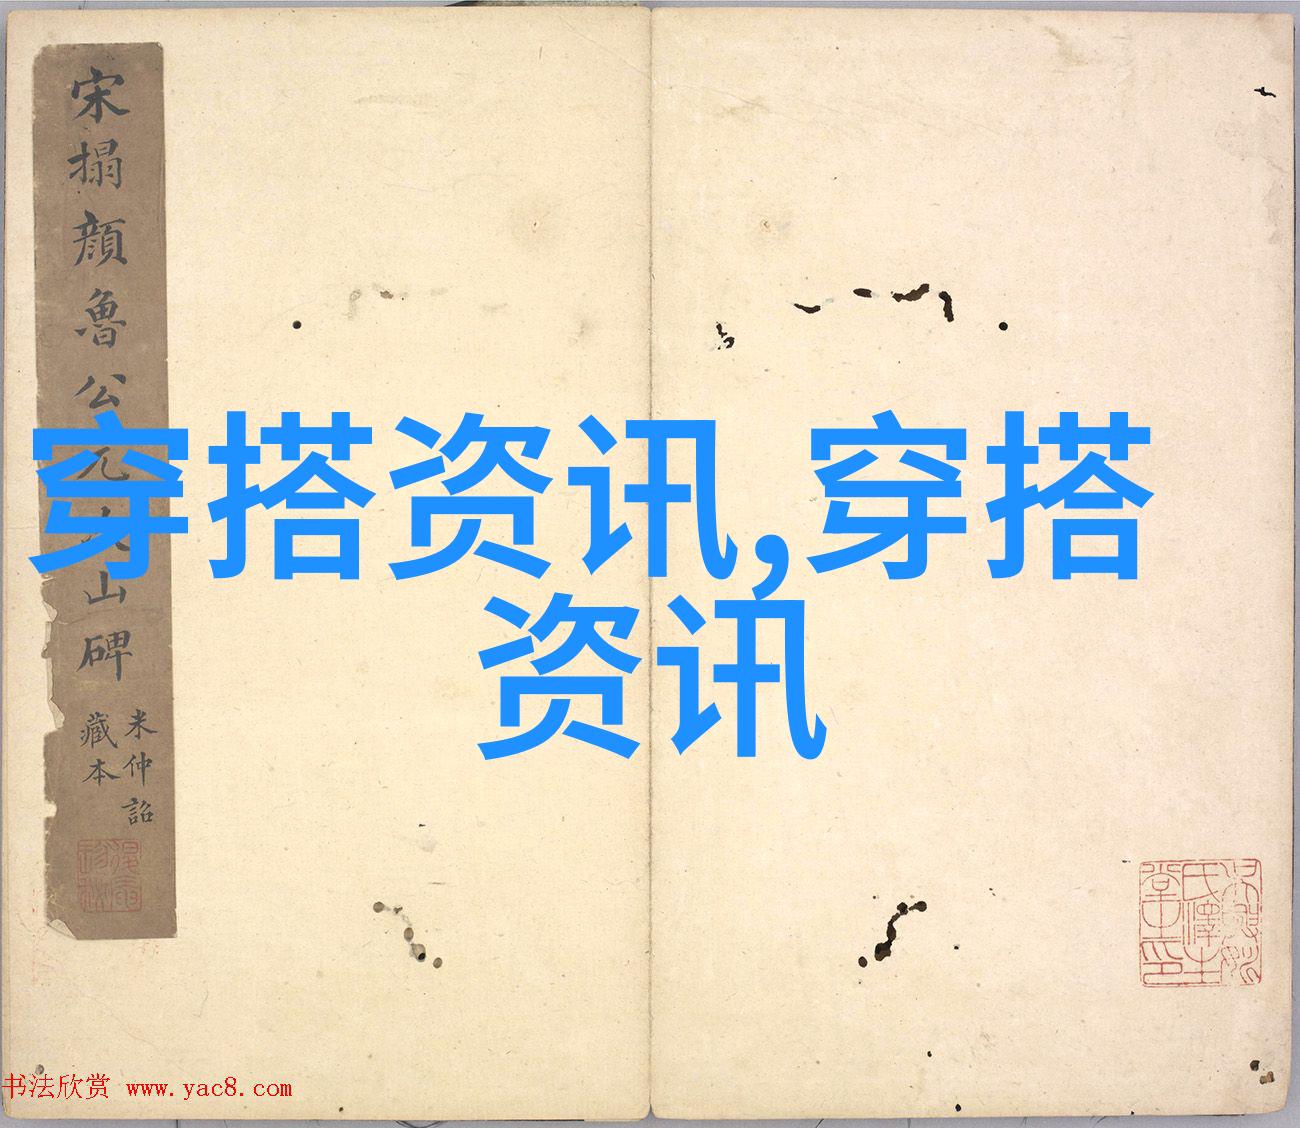 宋搨顔魯公元次山碑
米仲詔
藏本
穿搭资讯,穿搭
资讯
书法欣赏 www.yac8.com